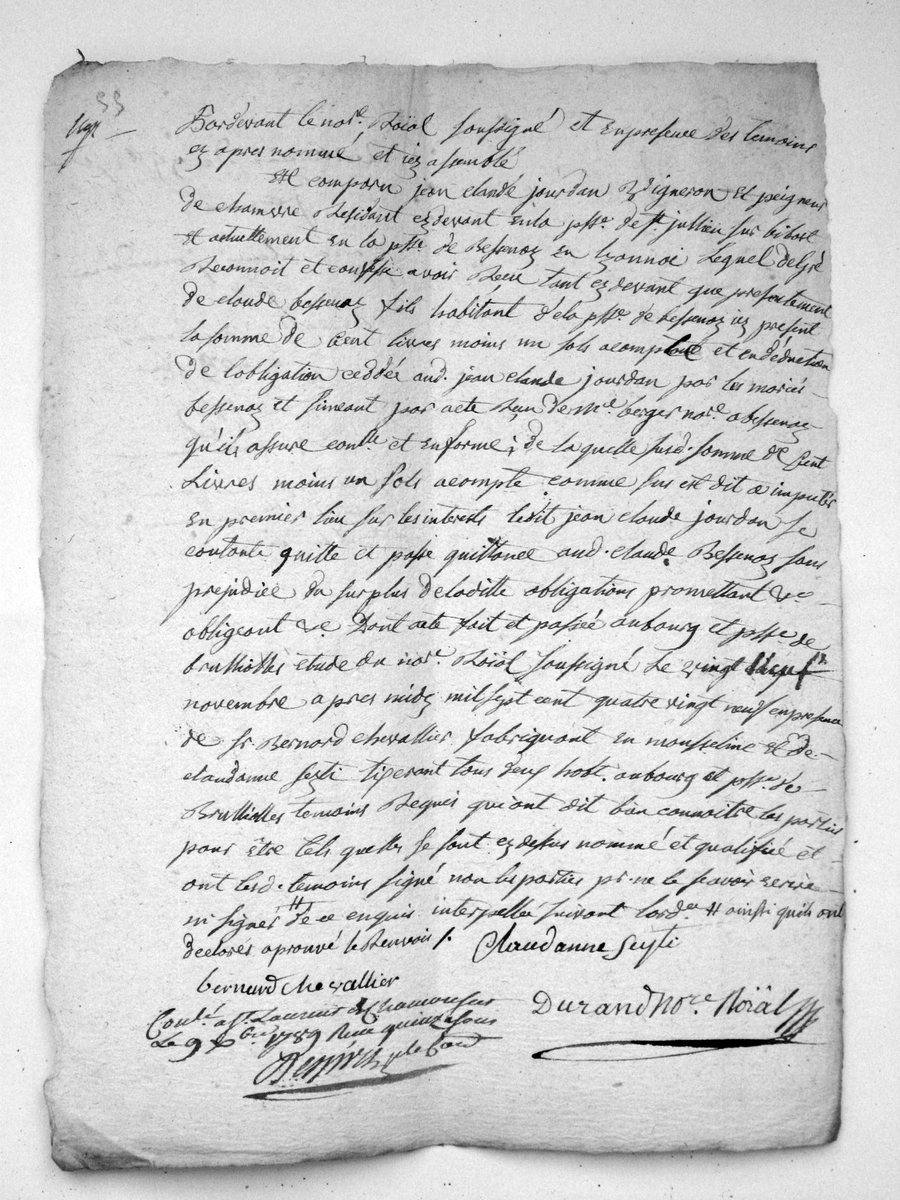 55
Pardevant le nore. Roïal soussigné et enpresence des temoins
cy apres nommé et icy assemblé
Est comparu jean claude jourdan Vigneron et peigneur
de chamvre Residant cydevant enla psse. de st. jullien sur bibost
et actuellement en la psse. de Bessenay en lyonnoi Lequel de gré
Reconnoit et confesse avoir Recu tant cydevant que presentement
de claude bessenay fils habitant dela psse. de bessenay icy présent
la somme de Cent livres moins un sols acompte et endeduction
de lobligation ceddée aud. jean claude jourdan par les mariés
bessenay et simeant par acte Reçu de me. berger nore. a bessenay
qu'il assure conlle et enforme; de laquelle susd. somme de Cent
Livres moins un sols acompte comme sus est dit a imputer
en premier lieu sur les interests ledit jean claude jourdan se
contante quitte et passe quittance aud. claude Bessenay sans
prejudice du surplus deladitte obligations promettant &ce
obligeant &ce Dont acte fait et passée aubourg et psse. de
brullioles etude du nore. Roïal soussigné Le vingt neuf
novembre apres midy mil sept cent quatre vingt neuf enpresence
de sr Bernard chevallier fabriquant en mousseline et de
claudanne seyti tiserant tous deux habt. aubourg et psse. de
Brullioles temoins Requis qui ont dit bien connoitre les parties
pour être tels quelles se sont cydessus nommé et qualifié et
ont lesd. temoins signé non les parties pr. ne le scavoir ecrire
ni signer # de ce enquis interpellée suivant lordce # ainsi quils ont
declarés aprouvé le Renvois /.
Claudanne Seyti
bernard chevallier
Conlé. a st. Laurent de Chamousset
Le 9 Xbre 1789 Recu quinze sous
Durand Nore Roïal